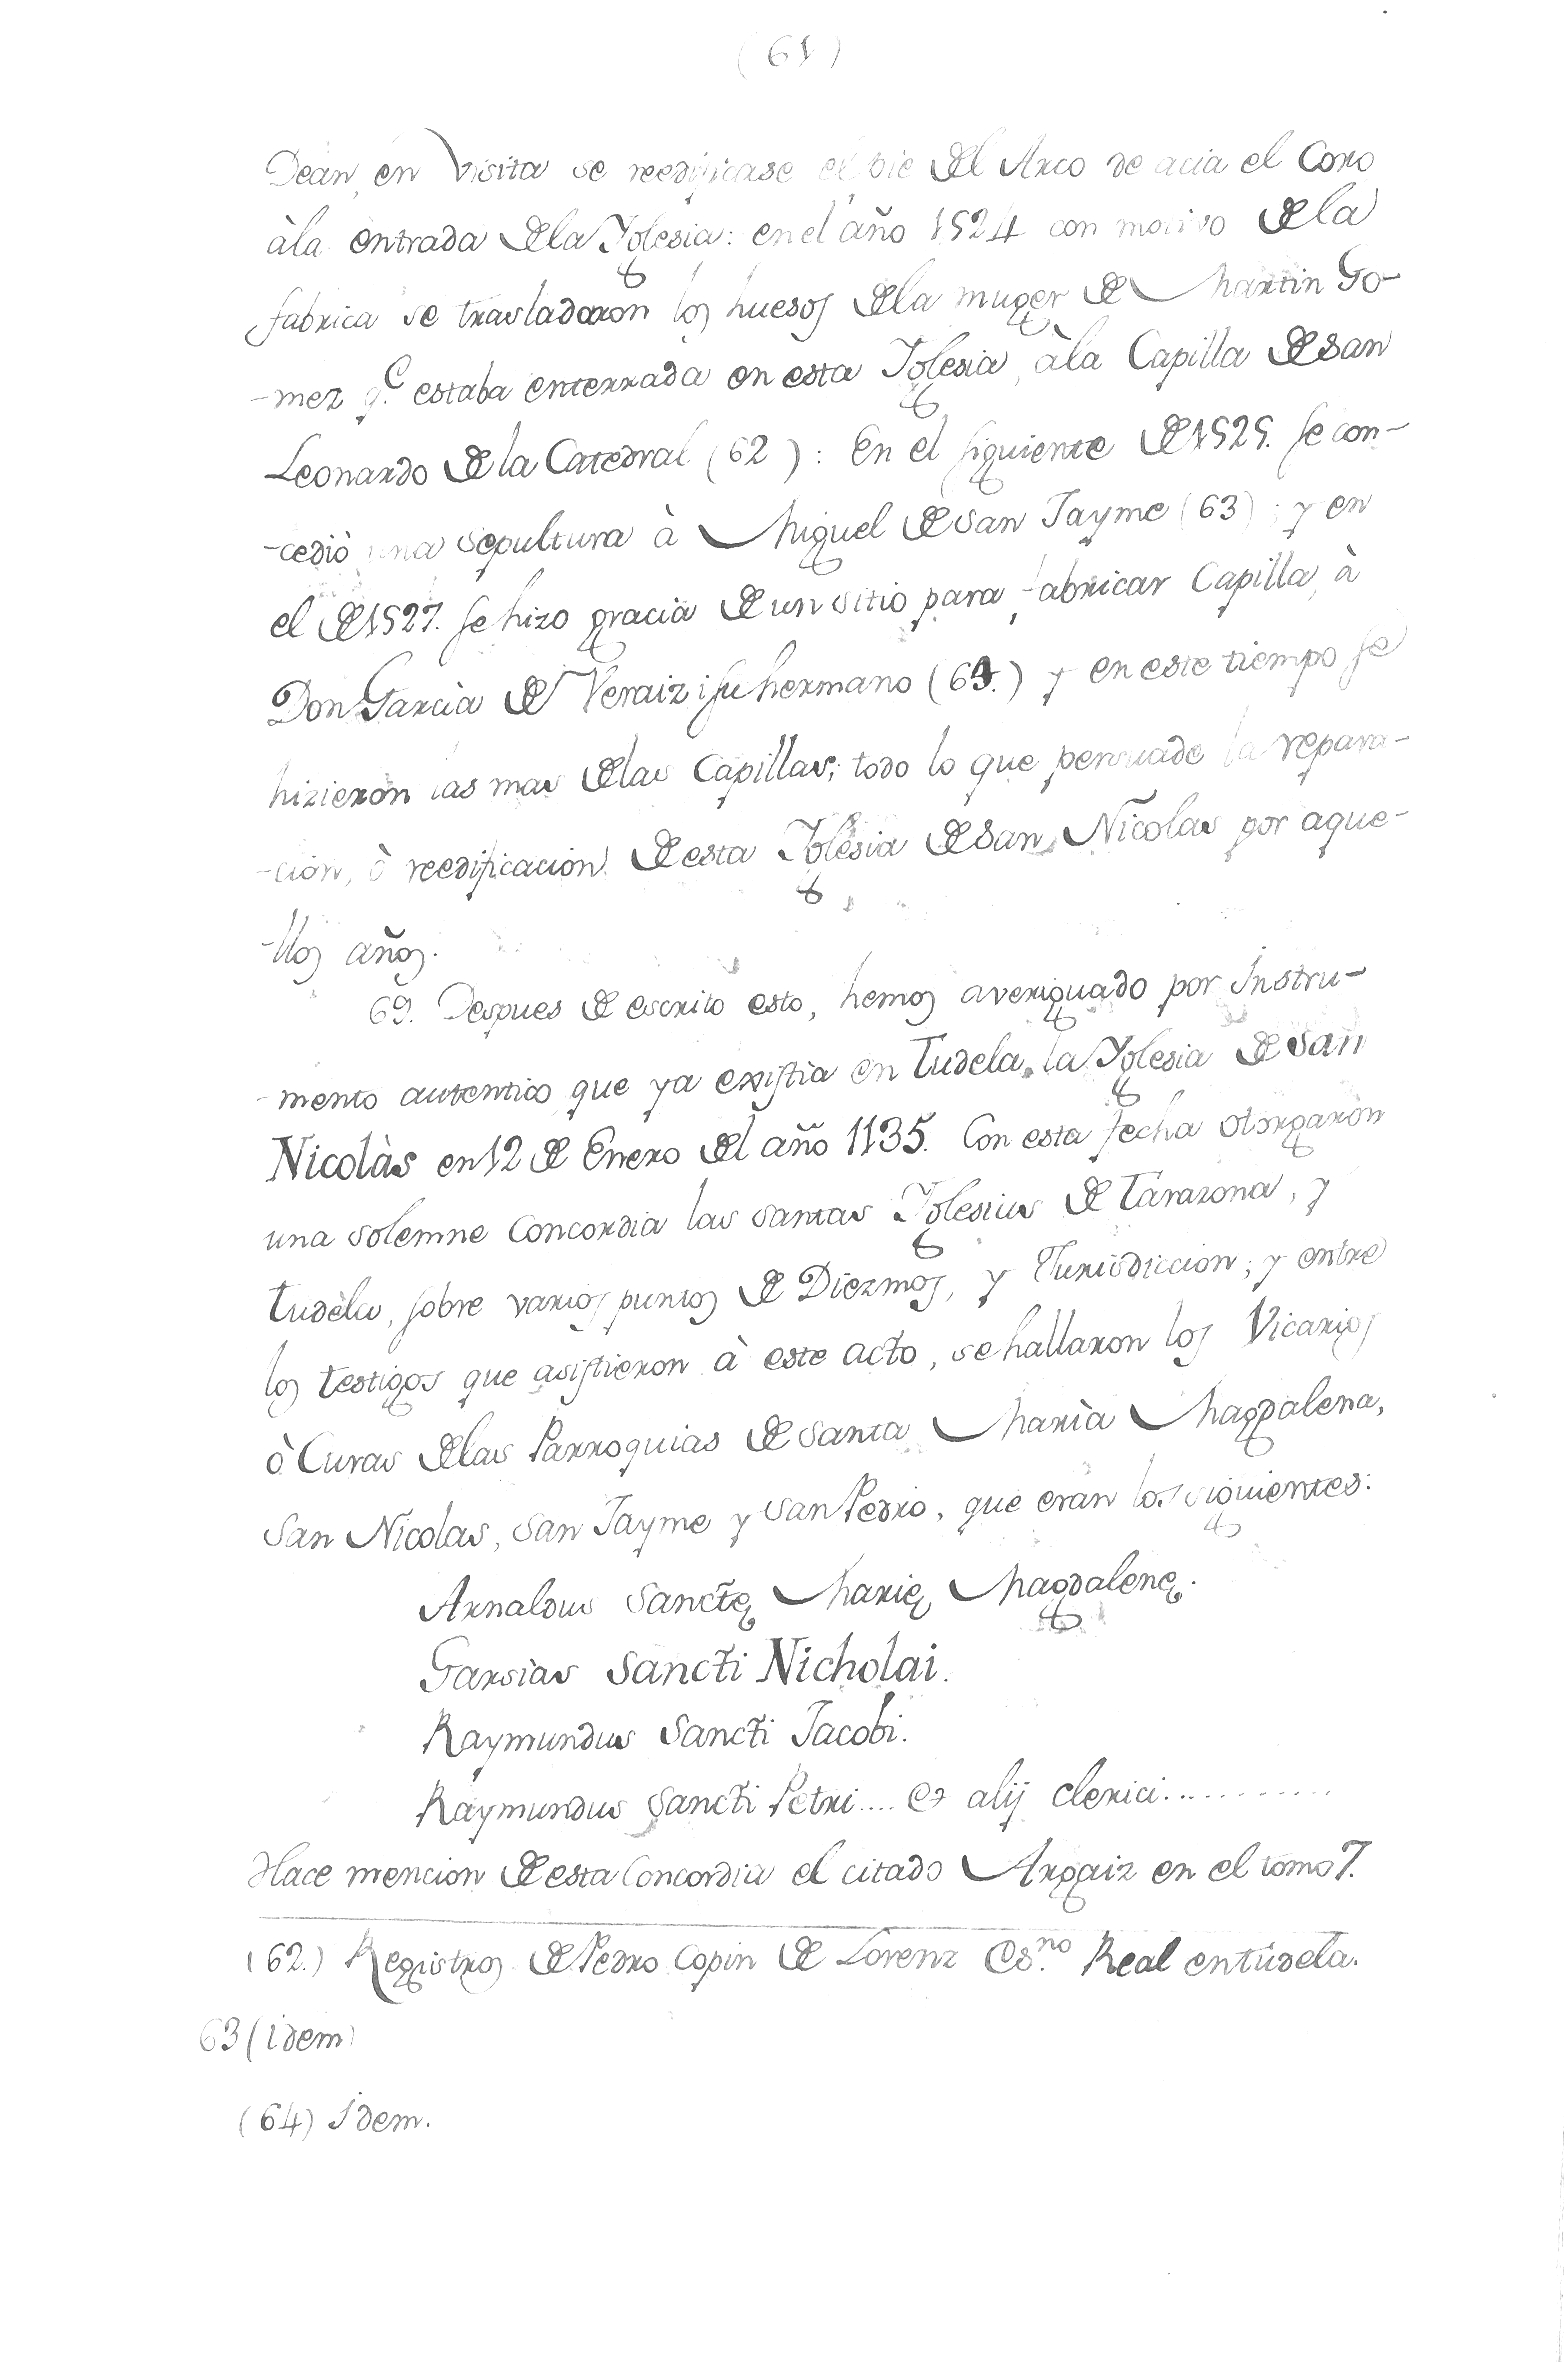 (61)
Dean en Visita se reedificase el pie del Arco de acia el Coro
àla entrada dela Yglesia: en el año 1524 con motivo dela
fabrica se trasladaron los huesos dela muger de Martin Go-
-mez q.e estaba enterrada en esta Yglesia, àla Capilla de San
Leonardo de la Catedral (62): En el siguiente de 1525. se con-
-cediò una sepultura à Miguel de San Jayme (63); y en
el de 1527. se hizo gracia de un sitio para fabricar Capilla, à
Don Garcìa de Veraiz i su hermano (64.) y en este tiempo se
hizieron las mas delas Capillas; todo lo que persuade la repara-
-cion, ò reedificacion de esta Yglesia de San Nicolas por aque-
-llos años.
69. Despues de escrito esto, hemos averiguado por Instru-
-mento autentico que ya existia en Tudela la Yglesia de San
Nicolàs en 12 de Enero del año 1135. Con esta fecha otorgaron
una solemne Concordia las Santas Yglesias de Tarazona, y
Tudela, sobre varios puntos de Diezmos, y Jurisdiccion; y entre
los testigos que asistieron à este acto, se hallaron los Vicarios
ò Curas delas Parroquias de Santa Marìa Magdalena,
San Nicolas, San Jayme y San Pedro, que eran los siguientes:
Arnaldus Sanctę Marię Magdalenę.
Garsias Sancti Nicholai.
Raymundus Sancti Jacobi.
Raymundus Sancti Petri.... et alij clerici............
Hace mencion de esta Concordia el citado Argaiz en el tomo 7.
(62.) Registros de Pedro Copin de Lorenz Es.no Real en Tudela.
63 (idem)
(64) Idem.